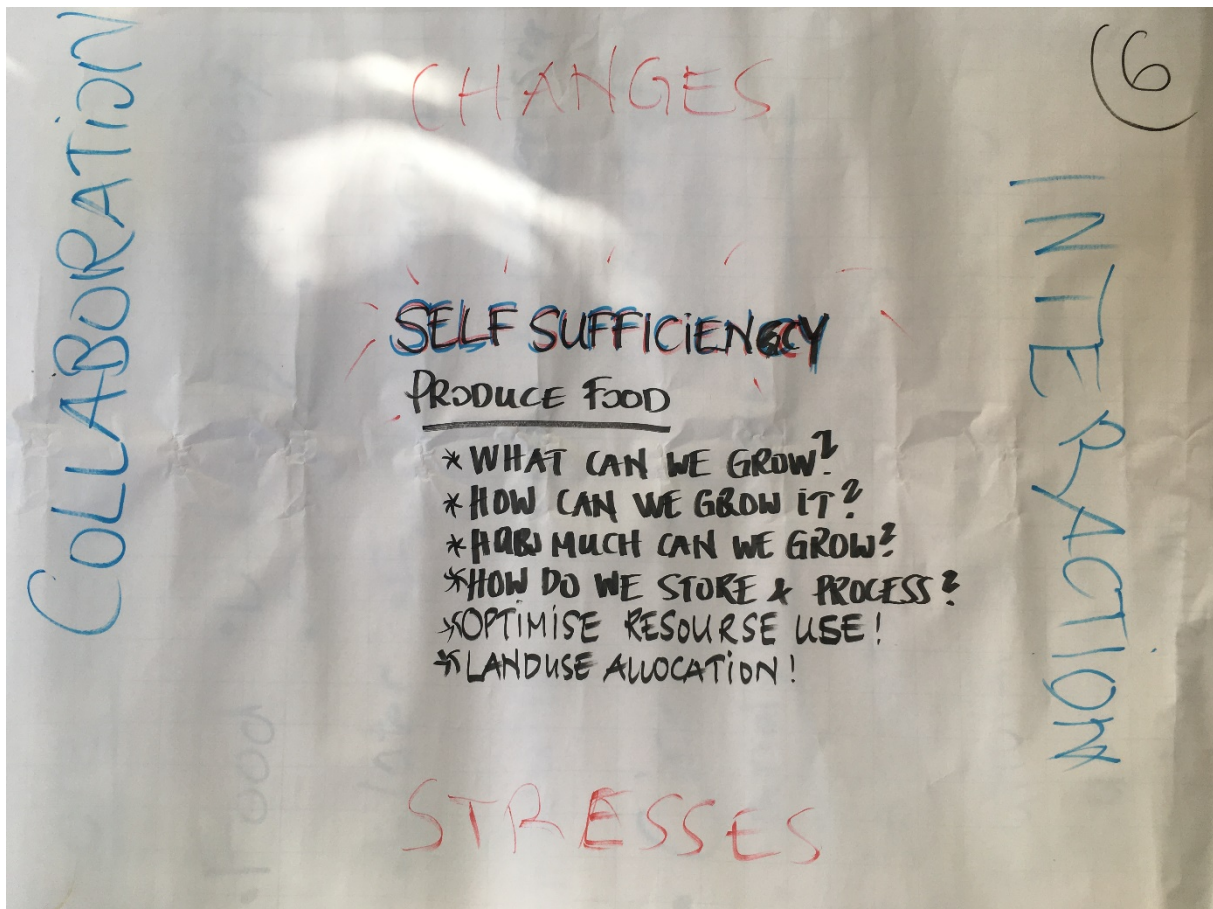 CHANGES
6
COLLABORATION
INTERACTION
SELF SUFFICIENCY
PRODUCE FOOD
* WHAT CAN WE GROW?
* HOW CAN WE GROW IT?
* HOW MUCH CAN WE GROW?
* HOW DO WE STORE & PROCESS?
* OPTIMISE RESOURSE USE!
* LANDUSE ALLOCATION!
STRESSES